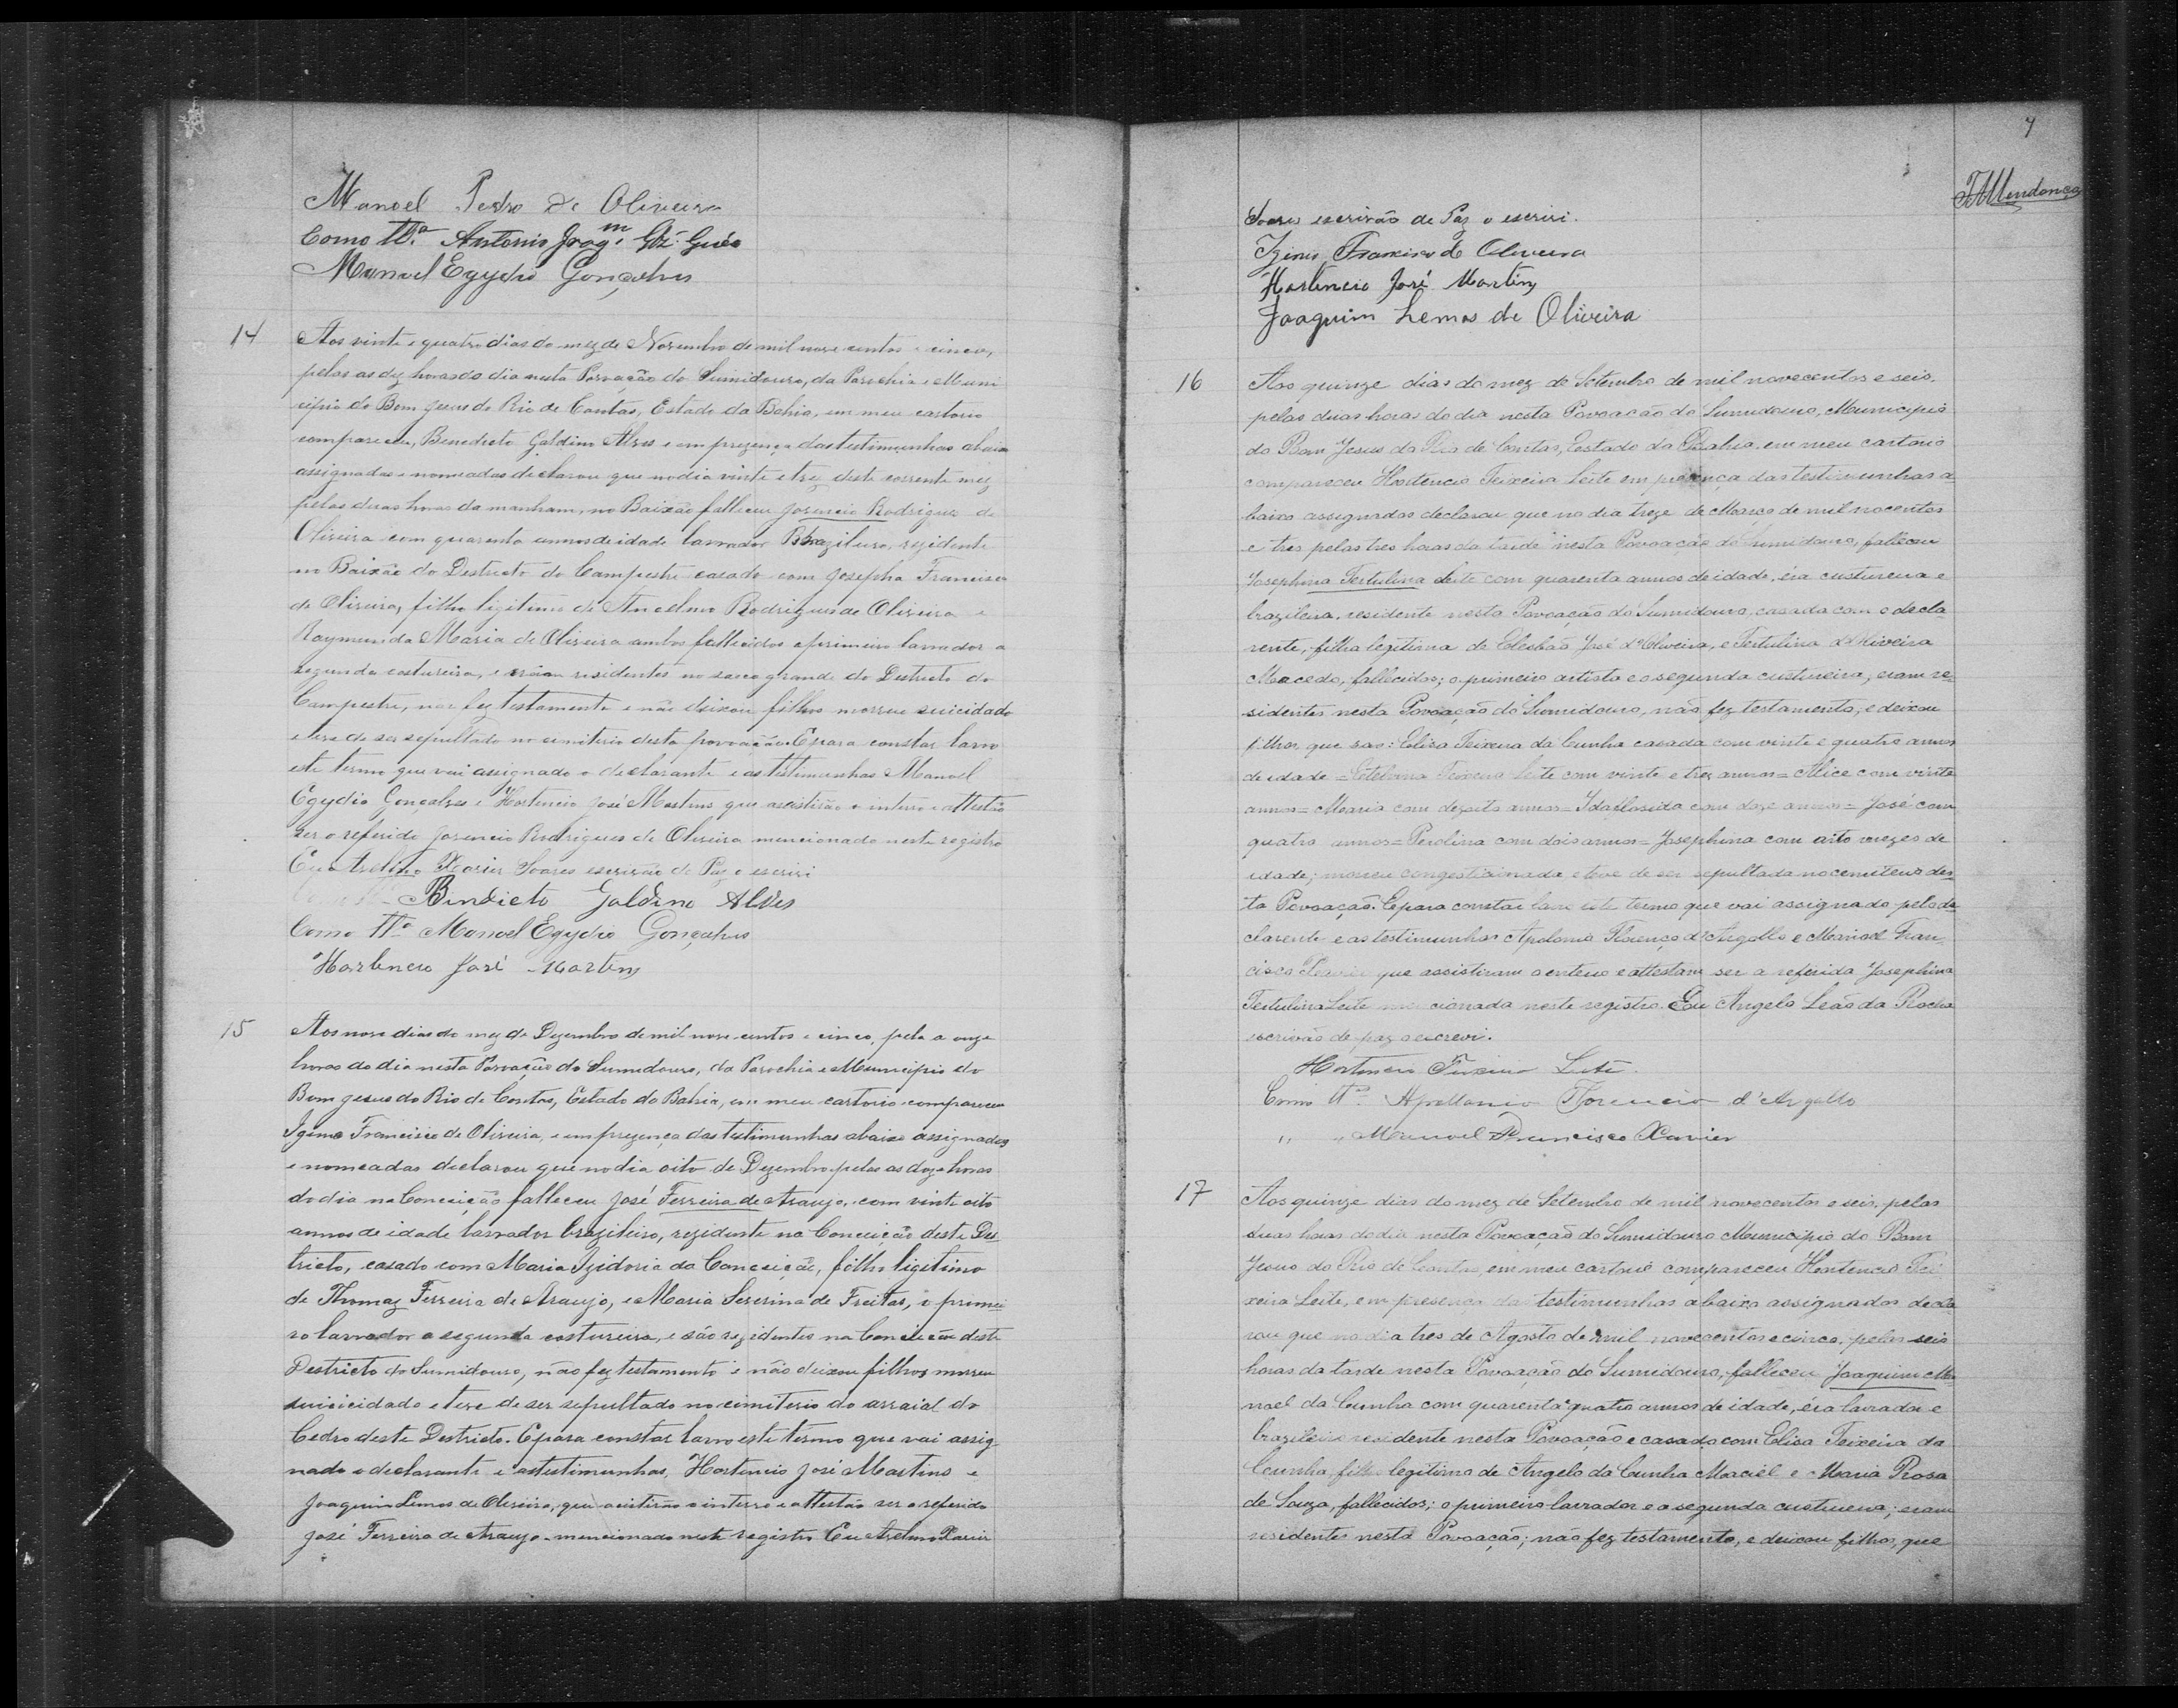 Manoel Pedro de Oliveira
Como Ta. Antonio Joaqm.
Manoel Egydio Gonçalves
14
Aos vinte e quatro dias do mez de Novembro de mil nove centos e cinco,
pelas as dez horas do dia nesta Povoação do Sumidouro, da Parochia e Muni
cipio do Bom Jesus do Rio de Contas, Estado da Bahia, em meu cartorio
compareceu, Benedicto Galdino Alves e em prezença das testimunhas abaixo
assignadas e nomeadas declarou que no dia vinte e trez deste corrente mez
pelas duas horas da manham, no Baixão falleceu Jovencio Rodrigues de
Oliveira com quarenta annos de idade lavrador Brazileiro, rezidente
no Baixão do Destricto do Campestre casado com Josepha Francisca
de Oliveira, filho ligitimo de Ancelmo Rodrigues de Oliveira e
Raymunda Maria de Oliveira ambos fallecidos o primeiro lavrador a
segunda costureira, e erão residentes no saco grande do Destricto do
Campestre, não fez testamento e não deixou filhos morreu suicidado
e teve de ser sepultado no cimiterio desta povoação. E para constar lavro
este termo que vai assignado o declarante e as testimunhas Manoel
Egydio Gonçalves e Hortencio José Martins que assistirão o interro e attestão
ser o referido Jovencio Rodrigues de Oliveira mencionado neste registro
Eu Avelino Xavier Soares escrivão de Paz o escrivi
Bindicto Galdino Alves
Como Ta. Manoel Egydio Gonçalves
Hortencio José Martins
15
Aos nove dias do mez de Dezembro de mil nove centos e cinco, pela a onze
horas do dia nesta Povoação do Sumidouro, da Parochia e Municipio do
Bom Jesus do Rio de Contas, Estado da Bahia, em meu cartorio compareceu
Igino Francisco de Oliveira, e em prezença das testimunhas abaixo assignados
e nomeadas declarou que no dia oito de Dezembro pelas as doze horas
do dia na Conceição falleceu José Ferreira de Araujo, com vinte oito
annos de idade lavrador brazileiro, rezidente na Conceição deste Des
tricto, casado com Maria Izidoria da Conceição, filho ligitimo
de Thomaz Ferreira de Araujo, e Maria Severina de Freitas, o primei
ro lavrador a segunda costureira, e são rezidentes na Conceição deste
Destricto do Sumidouro, não fez testamento e não deixou filhos morreu
suicicidado e teve de ser sepultado no cimiterio do arraial do
Cedro deste Destricto. E para constar lavro este termo que vai assig
nado o declarante e as testimunhas, Hortencio José Martins e
Joaquim Lemos de Oliveira, que assistirão o interro e attestão ser o referido
José Ferreira de Araujo mencionado neste registro Eu Avelino Xavier
7
Soares escrivão de Paz o escrivi.
Igino Francisco de Oliveira
Hortencio José Martins
Joaquim Lemos de Oliveira
16
Aos quinze dias do mez de Setembro de mil novecentos e seis,
pelas duas horas do dia nesta Povoação do Sumidouro, Municipio
do Bom Jesus do Rio de Contas, Estado da Bahia, em meu cartorio
compareceu Hortencio Teixeira Leite em presença das testimunhas a
baixo assignadas declarou que no dia treze de Março de mil nocentos
e tres pelas tres horas da tarde nesta Povoação do Sumidouro, falleceu
Josephina Tertulina Leite com quarenta annos de idade, éra custureira e
brazileira, residente nesta Povoação do Sumidouro, casada com o decla
rente, filha legitima de Elesbão José d'Oliveira, e Tertulina d'Oliveira
Macedo, fallecidos; o primeiro artista e a segunda custureira, eram re
sidentes nesta Povoação do Sumidouro, não fez testamento, e deixou
filhos que são: Elisa Teixeira da Cunha casada com vinte e quatro annos
de idade = Teixeira Leite com vinte e trez annos = Alice com vinte
annos = Maria com dezoito annos = com doze annos = José com
quatro annos = com dois annos = Josephina com oito mezes de
idade; morreu congestionada e teve de ser sepultada no cemiterio des
ta Povoação. E para constar lavro este termo que vai assignado pelo de
clarente e as testimunhas Apolonio Florenço d'Argollo e Manoel Fran
cisco Xavier que assistiram o enterro e attestam ser a referida Josephina
Tertulina Leite mencionada neste registro. Eu Angelo Leão da Rocha
escrivão de paz o escrevi.
Hortencio Teixeira Leite
Como Ta. Apollonio Florencio d'Argollo
" " Manoel Francisco Xavier
17
Aos quinze dias do mez de Setembro de mil novecentos e seis, pelas
duas horas do dia nesta Povoação do Sumidouro Municipio do Bom
Jesus do Rio de Contas, em meu cartorio compareceu Hortencio Tei
xeira Leite, em presença das testimunhas abaixo assignados decla
rou que no dia tres de Agosto de mil novecentos e cinco, pelas seis
horas da tarde nesta Povoação do Sumidouro, falleceu Joaquim Ma
noel da Cunha com quarenta e quatro annos de idade, éra lavrador e
brazileiro residente nesta Povoação e casado com Elisa Teixeira da
Cunha, filho legitimo de Angelo da Cunha Maciel e Maria Rosa
de Souza, fallecidos; o primeiro lavrador e a segunda custureira; eram
residentes nesta Povoação; não fez testamento, e deixou filhos, que